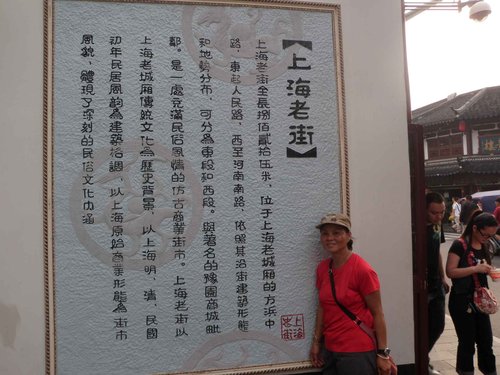 【上海老街】
上海老街全長捌佰貳拾伍米，位于上海老城厢的方浜中
路，東起人民路，西至河南南路，依照其沿街建築形態
和地勢分布，可分為東段和西段。與著名的豫園商城毗
鄰。是一處充滿民俗風情的仿古商業街市。上海老街以
上海老城厢傳統文化為歷史背景，以上海明、清、民國
初年民居風韵為建築格調，以上海原始商業形態為街市
風貌，體現了深刻的民俗文化内涵
上海
老街